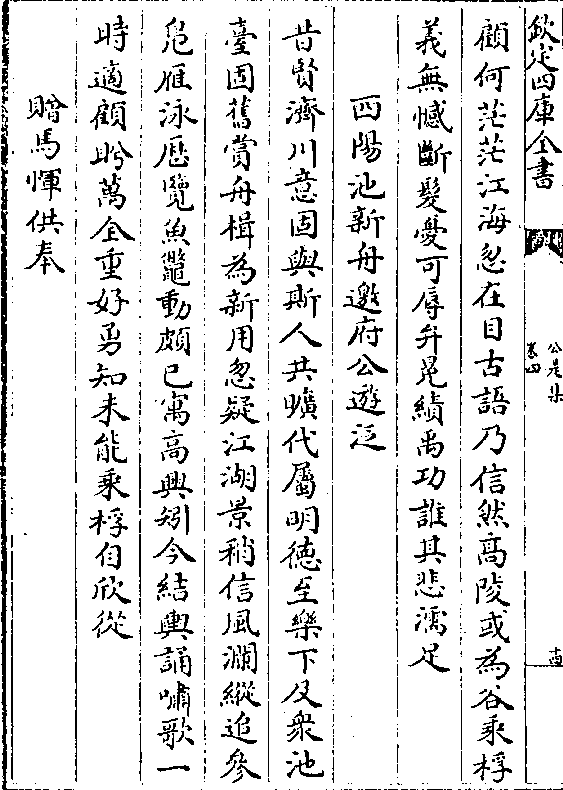 欽定四庫全書
公是集
卷四
顧何茫茫江海忽在目古語乃信然高陵或為谷乘桴
義無憾斷髮憂可辱弁冕績禹功誰其悲濡足
四陽池新舟邀府公遊泛
昔賢濟川意固與斯人共曠代屬明德至樂下及衆池
臺固舊賞舟楫為新用忽疑江湖景稍信風瀾縱追參
鳬雁泳歴覽魚鼈動頗已寓高興矧今結輿誦嘯歌一
時適顧盻萬金重好勇知未能乘桴自欣從
贈馬惲供奉